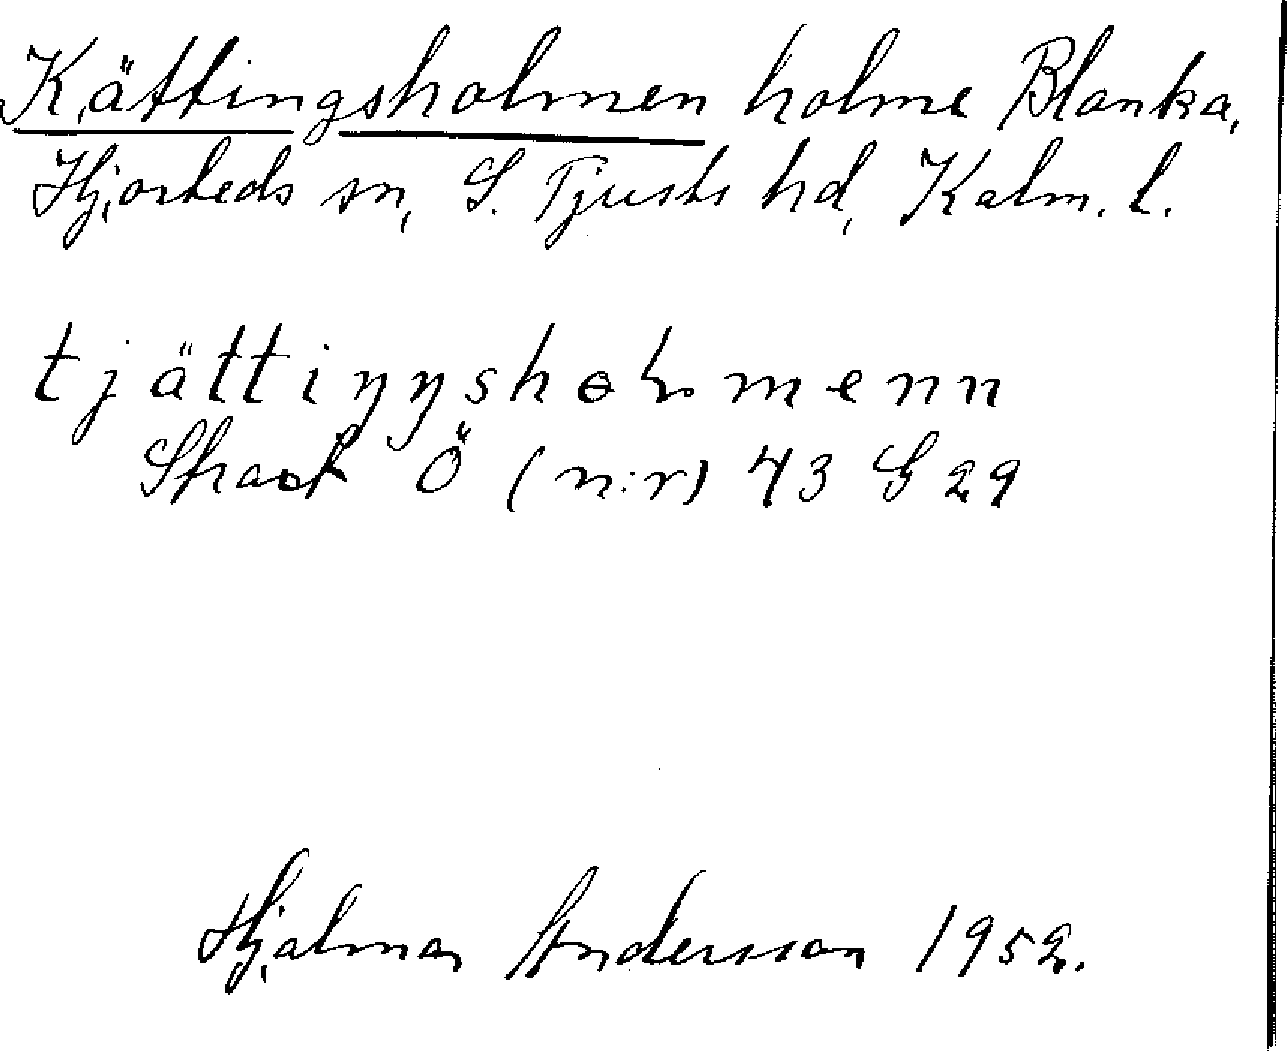 Kättingsholmen holme Blanka,
Hjorteds sn, S. Tjusts hd, Kalm. l.
tjättiŋŋshoLmenn
Ö (n:r) 43 G 29
Hjalmar Andersson 1952.